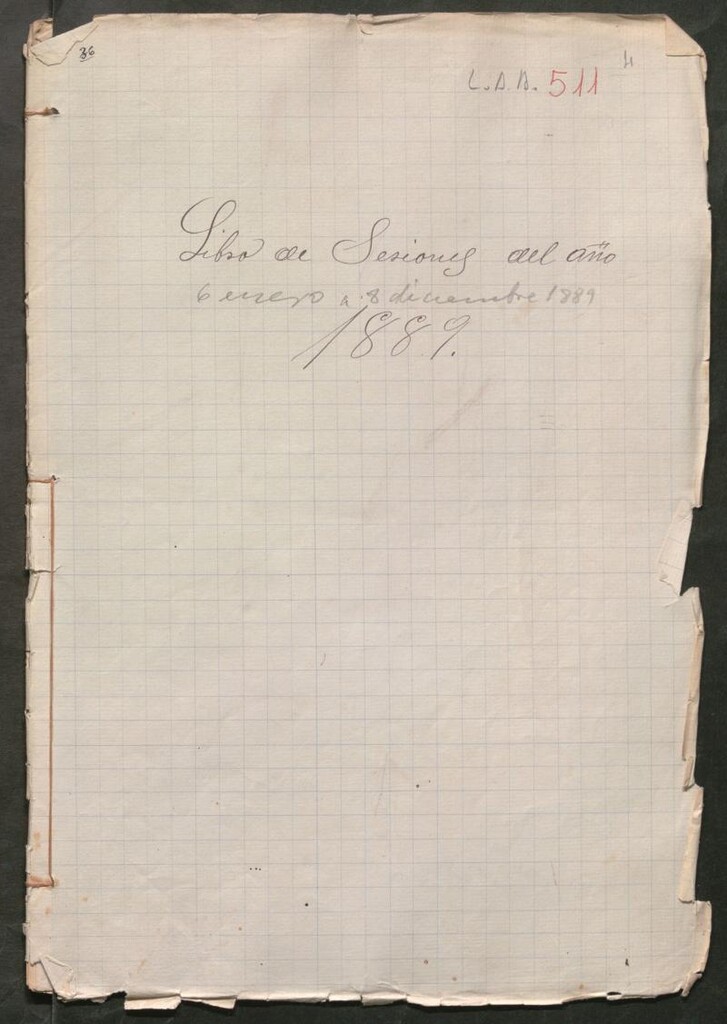 36
4
L.A.A. 511
Libro de Sesiones del año
6 enero a 8 diciembre 1889
1889.